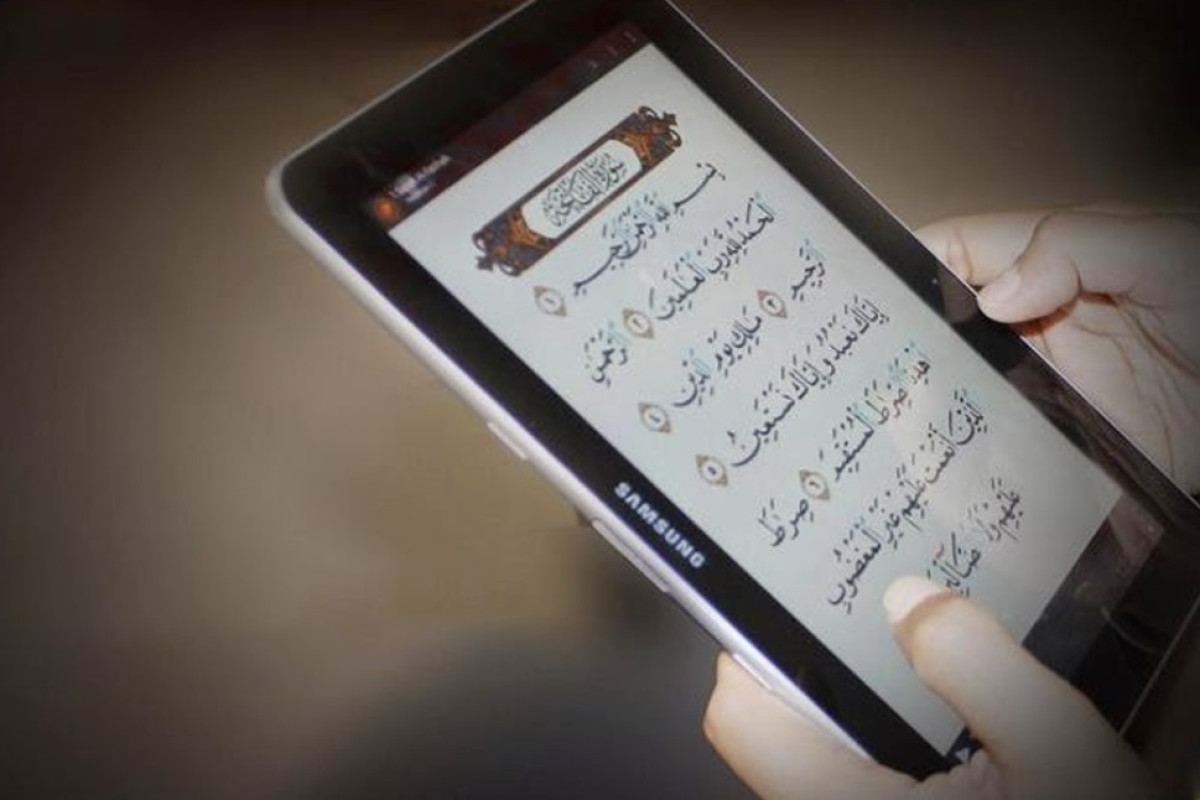 سورة الفاتحة
بِسْمِ ٱللَّهِ ٱلرَّحْمَٰنِ ٱلرَّحِيمِ ١
ٱلْحَمْدُ لِلَّهِ رَبِّ ٱلْعَٰلَمِينَ ٢ ٱلرَّحْمَٰنِ
ٱلرَّحِيمِ ٣ مَٰلِكِ يَوْمِ ٱلدِّينِ ٤
إِيَّاكَ نَعْبُدُ وَإِيَّاكَ نَسْتَعِينُ ٥
ٱهْدِنَا ٱلصِّرَٰطَ ٱلْمُسْتَقِيمَ ٦ صِرَٰطَ
ٱلَّذِينَ أَنْعَمْتَ عَلَيْهِمْ غَيْرِ ٱلْمَغْضُوبِ
عَلَيْهِمْ وَلَا
SAMSUNG